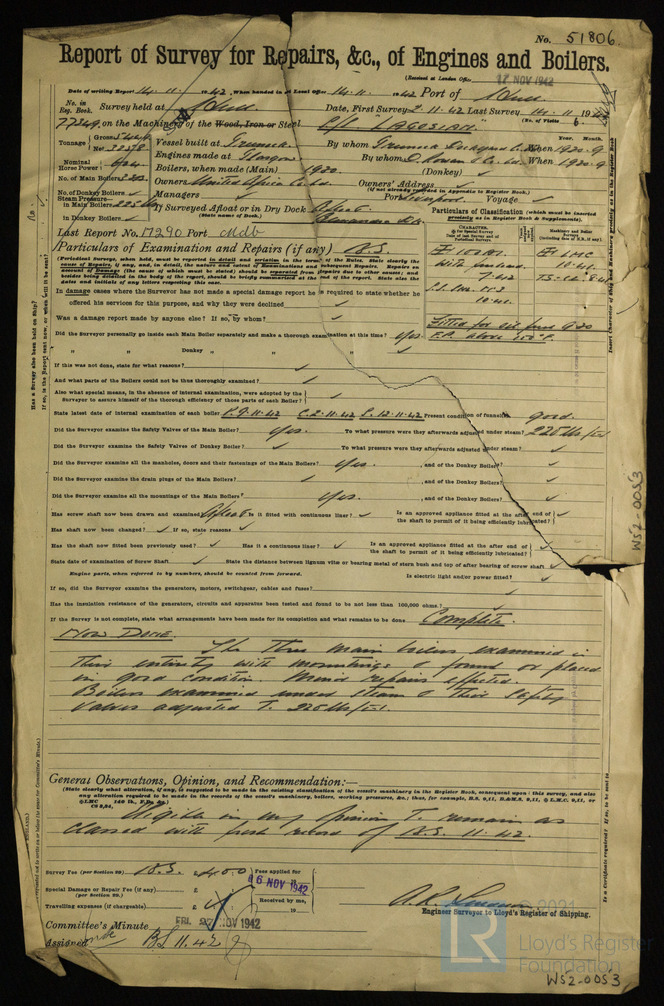 No. 51806
Report of Survey for Repairs, &c., of Engines and Boilers.
(Received at London Office 17 NOV 1942
Date of writing Report 14.11.1942 When handed in at Local Office 14.11.1942 Port of Hull
No. in Reg. Book. Survey held at Hull Date, First Survey 2.11.42 Last Survey 14.11.1942
(No. of Visits 6
77249 on the Machinery of the Wood, Iron or Steel S/S "LAGOSIAN"
Tonnage Gross 5449 Net
Vessel built at Greenock By whom Greenock Dockyard Co. When 1920.9
Year. Month.
Engines made at Glasgow By whom D. Rowan & Co. Ld. When 1920.9
Nominal Horse Power
Boilers, when made (Main) 1920 (Donkey) ✓
No. of Main Boilers
Owners United Africa Co. Ld. Owners' Address
(if not already recorded in Appendix to Register Book.)
No. of Donkey Boilers ✓
Managers ✓ Port Liverpool Voyage ✓
Steam Pressure—
in Main Boilers 225 lbs
in Donkey Boilers ✓
If Surveyed Afloat or in Dry Dock Afloat
(State name of Dock.) Alexandra Dk.
Particulars of Classification (which must be inserted precisely as in Register Book & Supplements).
Last Report No. 17290 Port Mdb
Particulars of Examination and Repairs (if any) B.S.
(Periodical Surveys, when held, must be reported in detail and seriatim in the terms of the Rules. State clearly the cause of Repairs, if any, and, in detail, the nature and extent of Examinations and subsequent Repairs. Repairs on account of Damage (the cause of which must be stated) should be separated from Repairs due to other causes; and besides being detailed in the body of the report, should be briefly summarized at the end of the report. State also the dates and initials of any letters respecting this case.)
CHARACTER.
LMC
With
7.42
10.41
Fitted for oil fuel 9.20
F.P. above 150°F.
In damage cases where the Surveyor has not made a special damage report he is required to state whether he offered his services for this purpose, and why they were declined ✓
Was a damage report made by anyone else? If so, by whom? ✓
Did the Surveyor personally go inside each Main Boiler separately and make a thorough examination at this time? Yes.
" " Donkey " " " " ✓
If this was not done, state for what reasons? ✓
And what parts of the Boilers could not be thus thoroughly examined? ✓
Also what special means, in the absence of internal examination, were adopted by the Surveyor to assure himself of the thorough efficiency of those parts of each Boiler? ✓
State latest date of internal examination of each boiler P.9.11.42 C.2.11.42 S.12.11.42 Present condition of funnel good.
Did the Surveyor examine the Safety Valves of the Main Boiler? Yes. To what pressure were they afterwards adjusted under steam? 225 lbs/□"
Did the Surveyor examine the Safety Valves of Donkey Boiler? ✓ To what pressure were they afterwards adjusted under steam? ✓
Did the Surveyor examine all the manholes, doors and their fastenings of the Main Boilers? Yes. , and of the Donkey Boilers? ✓
Did the Surveyor examine the drain plugs of the Main Boilers? ✓ , and of the Donkey Boilers? ✓
Did the Surveyor examine all the mountings of the Main Boilers? Yes. , and of the Donkey Boilers? ✓
Has screw shaft now been drawn and examined Afloat Is it fitted with continuous liner? ✓ Is an approved appliance fitted at the after end of the shaft to permit of it being efficiently lubricated? ✓
Has shaft now been changed? ✓ If so, state reasons ✓
Has the shaft now fitted been previously used? ✓ Has it a continuous liner? ✓ Is an approved appliance fitted at the after end of the shaft to permit of it being efficiently lubricated?
State date of examination of Screw Shaft ✓ State the distance between lignum vitæ or bearing metal of stern bush and top of after bearing of screw shaft ✓
Engine parts, when referred to by numbers, should be counted from forward. Is electric light and/or power fitted? ✓
If so, did the Surveyor examine the generators, motors, switchgear, cables and fuses? ✓
Has the insulation resistance of the generators, circuits and apparatus been tested and found to be not less than 100,000 ohms? ✓
If the Survey is not complete, state what arrangements have been made for its completion and what remains to be done. Complete.
Now Done.
The three main boilers examined in
their entirety with mountings & found or placed
in good condition. Minor repairs effected.
Boilers examined under steam & their safety
valves adjusted to 225 lbs/□".
General Observations, Opinion, and Recommendation:—
(State clearly what alteration, if any, is suggested to be made in the existing classification of the vessel's machinery in the Register Book, consequent upon this survey, and also any alteration required to be made in the records of the vessel's machinery, boilers, working pressure, &c.; thus, for example, B.S. 9,11, B.&M.S. 9,11, ✠L.M.C. 9,11, or
Eligible in my opinion to remain as
classed with fresh record of B.S. 11.42.
Survey Fee (per Section 29) B.S. £ 4.0.0
Fees applied for
16 NOV 1942
Special Damage or Repair Fee (if any) (per Section 29.) £
Received by me,
Travelling expenses (if chargeable) £
19
Engineer Surveyor to Lloyd's Register of Shipping.
Committee's Minute FRI. 27 NOV 1942
Assigned BS 11.42
© 2021
LR
Lloyd's Register
Foundation
WS2-0053
WS2-0053